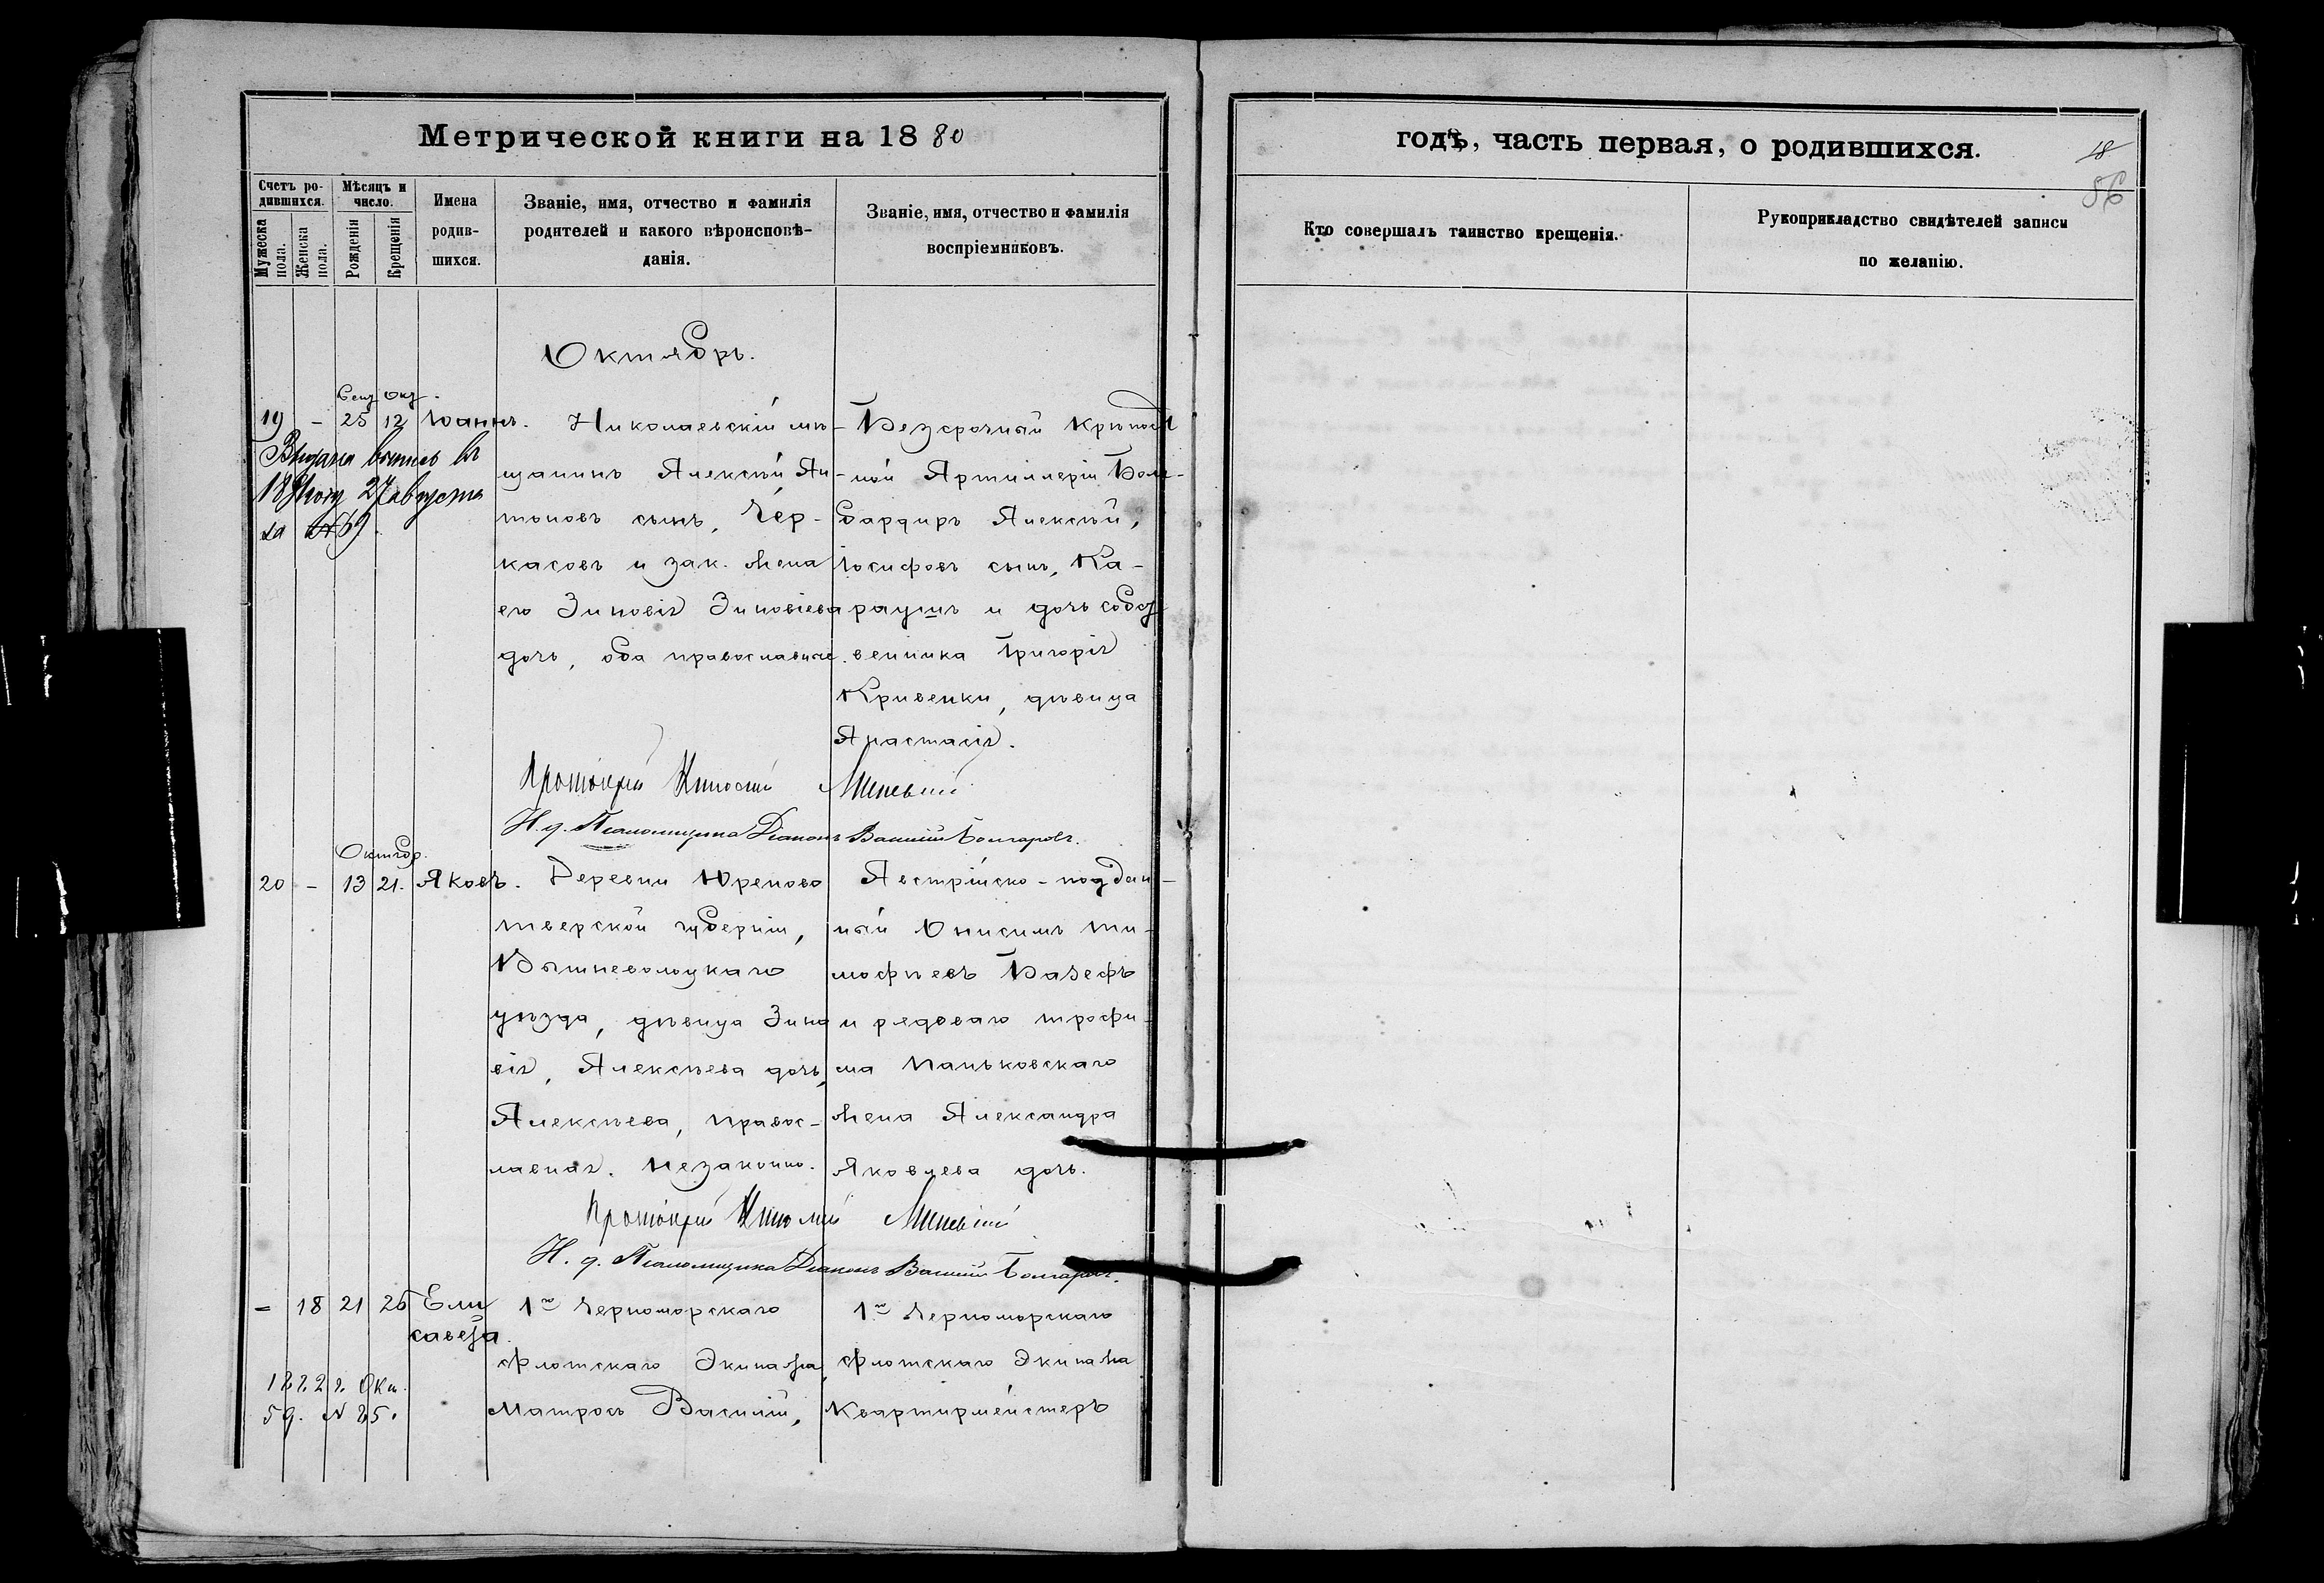 Метрической книги на 1880
годъ, часть первая, о родившихся.
18
56
Счетъ ро-
дившихся.
Мужеска пола.
Женска пола.
Мѣсяцъ и
число.
Рожденія
Крещенія
Имена
родив-
шихся.
Званіе, имя, отчество и фамилія
родителей и какого вѣроисповѣ-
данія.
Званіе, имя, отчество и фамилія
воспріемниковъ.
Кто совершалъ таинство крещенія.
Рукоприкладство свидѣтелей записи
по желанію.
Октябрь.
Сент Окт.
19 - 25 12 Іоаннъ.
Николаевскій мѣ-
щанинъ Алексѣй Ан-
тоновъ сынъ, Чер-
касовъ и зак. жена
его Зиновія Зиновіева
дочь, оба православные.
Безсрочный крѣпост
ной Артиллеріи Бом-
бардиръ Алексѣй,
Іосифовъ сынъ, Ка-
раушъ и дочь собст
венника Григорія
Кривенки, дѣвица
Анастасія.
Выдана въ
18 году 27 августа
за №69
Протоіерей
Н. д. Псаломщика Діаконъ Василій Болгаровъ.
Октябр.
20 - 13 21. Яковъ.
Деревни Юреново
тверской губерніи,
Вышневолоцкаго
уѣзда, дѣвица Зино
вія, Алексѣева дочь,
Алексѣева, правос-
лавная. Незаконно.
Австрійско-поддан-
ный Онисимъ ти-
мофѣевъ Базефъ
и рядоваго трофи-
ма Паньковскаго
жена Александра
Яковлева дочь.
Протоіерей
Н. д. Псаломщика Діаконъ Василій Болгаровъ.
- 18 21 26 Ели
савета.
1го Черноморскаго
флотскаго Экипажа,
Матросъ Василій,
1го Черноморскаго
флотскаго Экипажа
Квартирмейстеръ
г. Окт.
5 д. № 25.